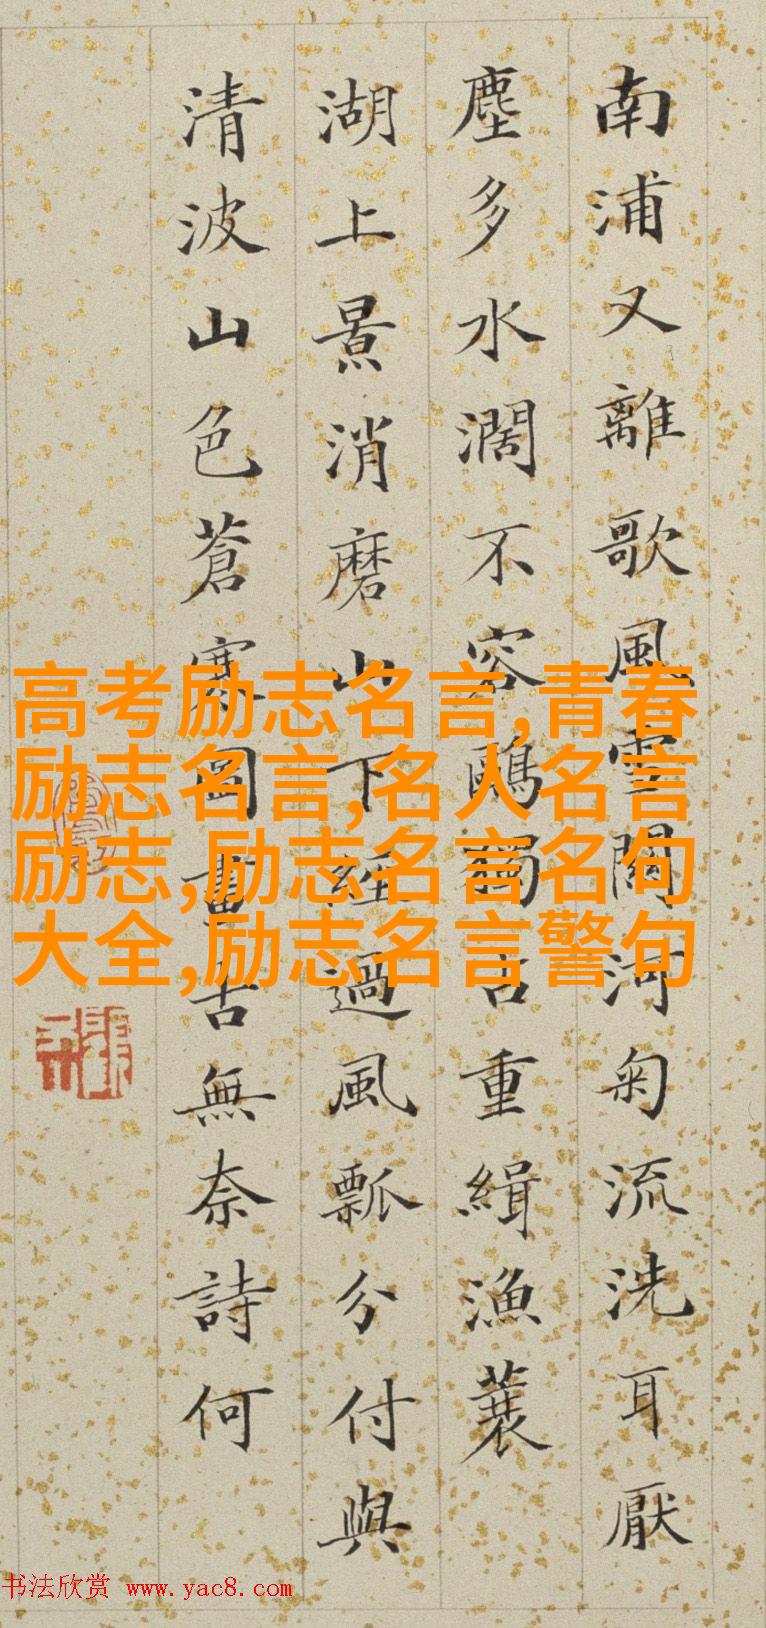 南浦又離歌風雪關河菊流洗耳厭
塵多水濶不容鷗獨占重緝漁蓑
湖上景消磨山下經過風瓢分付與
清波山色蒼寒圖畫古無奈詩何
高考励志名言,青春
励志名言,名人名言
励志,励志名言名句
大全,励志名言警句
书法欣赏 www.yac8.com